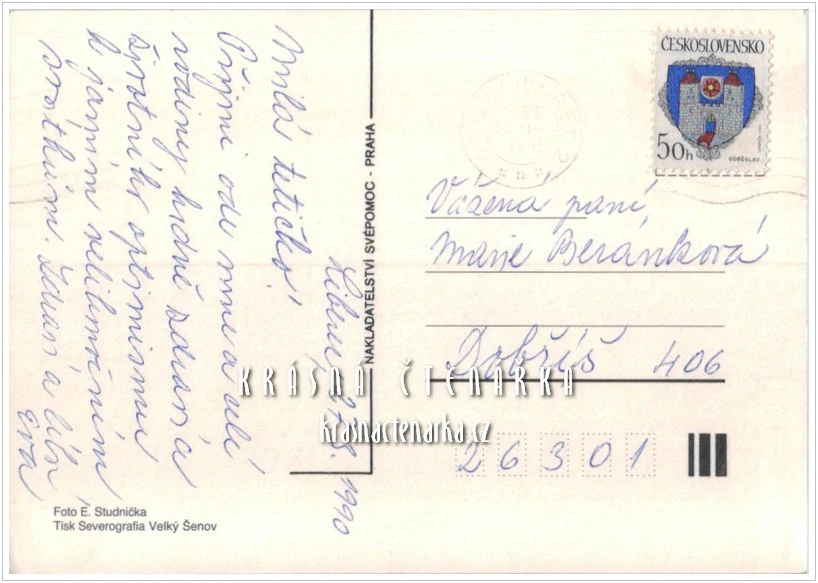 Liberec, 27.8. 1990
Milá tetičko!
Přijmi ode mne a celé
rodiny hodně zdraví a
životního optimismu
k jarním velikonočním
svátkům. Zdraví a líbá
Eva
NAKLADATELSTVÍ SVÉPOMOC - PRAHA
ČESKOSLOVENSKO
50h
SOBĚSLAV
Vážená paní
Marie Beránková
Dobříš 406
26301
KRÁSNÁ ČTENÁRKA
krasnactenarka.cz
Foto E. Studnička
Tisk Severografia Velký Šenov